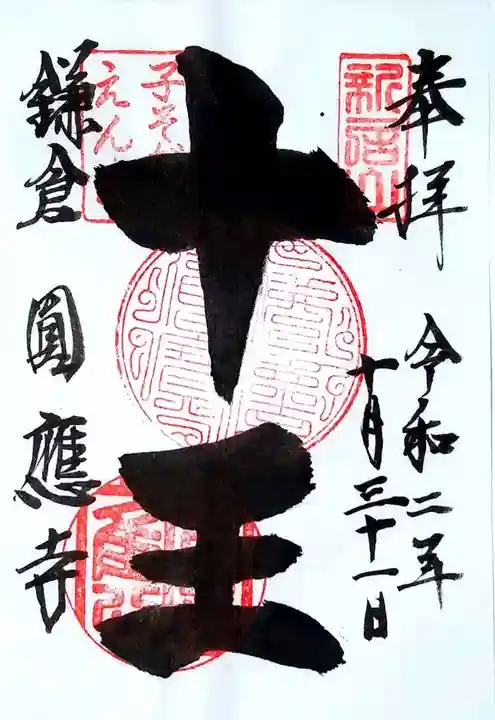 奉拝
新居山
令和二年
十月三十一日
十王
子そ
えん
鎌倉
圓應寺